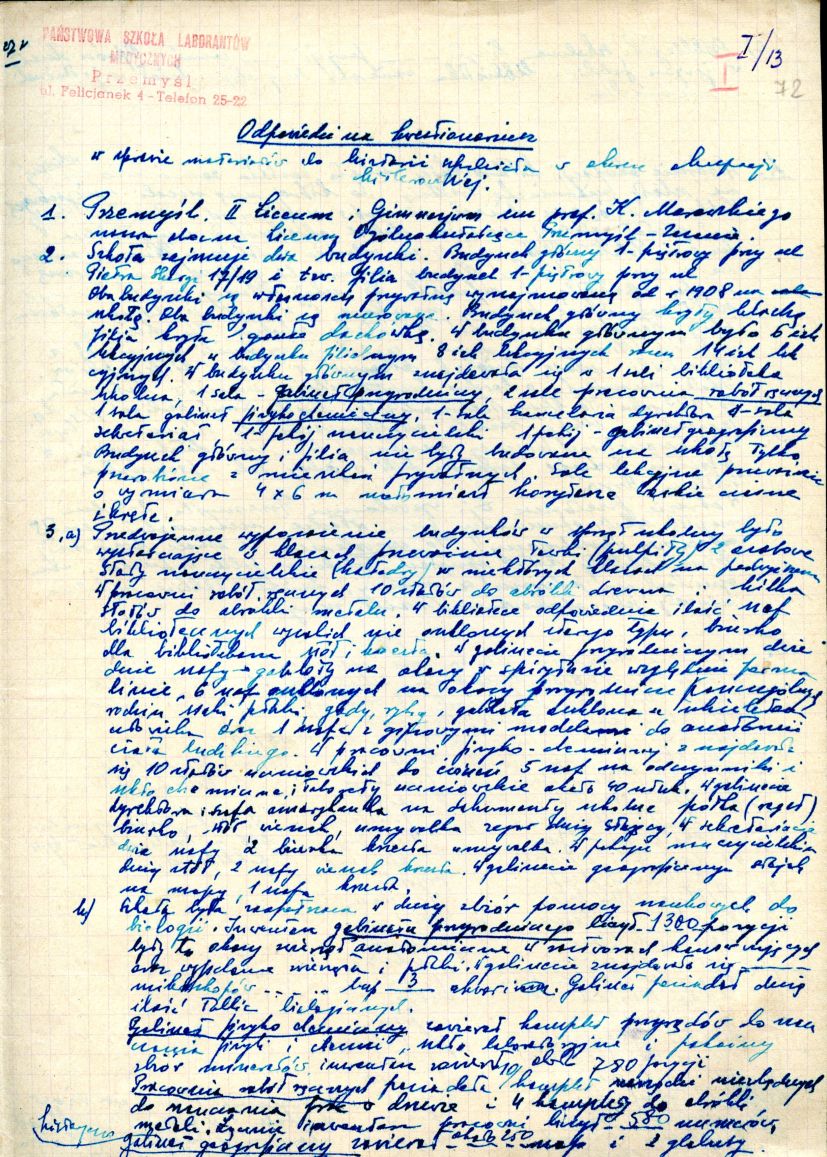 PAŃSTWOWA SZKOŁA LABORANTÓW
MEDYCZNYCH
Przemyśl
ul. Felicjanek 4 - Telefon 25-22
I/13
I
72
Odpowiedzi na kwestionariusz
w sprawie materiałów do historii szkolnictwa w okresie okupacji
hitlerowskiej.
1. Przemyśl. II Liceum i Gimnazjum im prof. K. Morawskiego
Liceum Ogólnokształcące Przemyśl - Zasanie.
2. Szkoła zajmuje dwa budynki. Budynek główny 1-piętrowy przy ul
Piotra Skargi 17/19 i tzw. filia budynek 1-piętrowy przy ul
Oba budynki są własnością prywatną wynajmowaną od r 1908 na
szkołę. Oba budynki są murowane. Budynek główny kryty blachą
filia kryta dachówką. W budynku głównym było 6 izb
lekcyjnych w budynku filialnym 8 izb lekcyjnych razem 14 izb lek
cyjnych. W budynku głównym znajdowała się w 1 sali biblioteka
szkolna, 1 sala - gabinet przyrodniczy, 2 sale pracownia robót ręcznych
1 sala gabinet fizykochemiczny, 1-sala kancelaria dyrektora 1-sala
sekretariat, 1-pokój nauczycielski 1 pokój - gabinet geograficzny
Budynek główny i filia nie były budowane na szkołę tylko
przerobione z mieszkań prywatnych. Sale lekcyjne przeważnie
o wymiarze 4 x 6 m natomiast korytarze wąskie ciasne
i kręte.
3, a) Przedwojenne wyposażenie budynków w sprzęt szkolny było
wystarczające w klasach przeważnie ławki (pulpity) 2 osobowe
stoły nauczycielskie (katedry) w niektórych klasach na podwyższeniu
W pracowni robót ręcznych 10 stołów do obróbki drewna i kilka
stołów do obróbki metalu. W bibliotece odpowiednia ilość szaf
bibliotecznych wysokich nie oszklonych starego typu, biurko
dla bibliotekarza stół i krzesła. W gabinecie przyrodniczym dwie
duże szafy-gabloty na okazy w spirytusie względnie forma
linie, 6 szaf oszklonych na okazy przyrodnicze poszczególnych
rodzin ssaki ptaki, gady, ryby, gablota oszklona z szkieletem
człowieka oraz 1 szafa z gipsowymi modelami do anatomii
ciała ludzkiego. W pracowni fizyko-chemicznej znajdowało
się 10 stołów uczniowskich do ćwiczeń 5 szaf na odczynniki i
szkło chemiczne, i taborety uczniowskie około 40 sztuk. W gabinecie
dyrektora szafa amerykanka na dokumenty szkolne półka (regał)
biurko, stół, wieszak, umywalka zegar duży stojący, W sekretariacie
dwie szafy 2 biurka krzesła umywalka. W pokoju nauczycielskim
duży stół, 2 szafy wieszak krzesła. W gabinecie geograficznym stojak
na mapy, 1 szafa krzesła.
b) Szkoła była zaopatrzona w duży zbiór pomocy naukowych do
biologii. Inwentarz gabinetu przyrodniczego liczył 1300 pozycji
były to okazy zwierząt anatomiczne w roztworach konserwujących
oraz wypchane zwierzęta i ptaki. W gabinecie znajdowało się
mikroskopów ...... lup 3 akwaria. Gabinet posiadał dużą
ilość tablic biologicznych.
Gabinet fizyko chemiczny zawierał komplet przyrządów do nau
czania fizyki i chemii, szkło laboratoryjne i pokaźny
zbiór minerałów inwentarz zawierał około 780 pozycji
Pracownia robót ręcznych posiadała 10 kompletów narzędzi niezbędnych
do nauczania prac w drzewie i 4 komplety do obróbki
metali. Łącznie inwentarz pracowni liczył 580 numerów,
gabinet geograficzny zawierał około 250 map i 2 globusy.